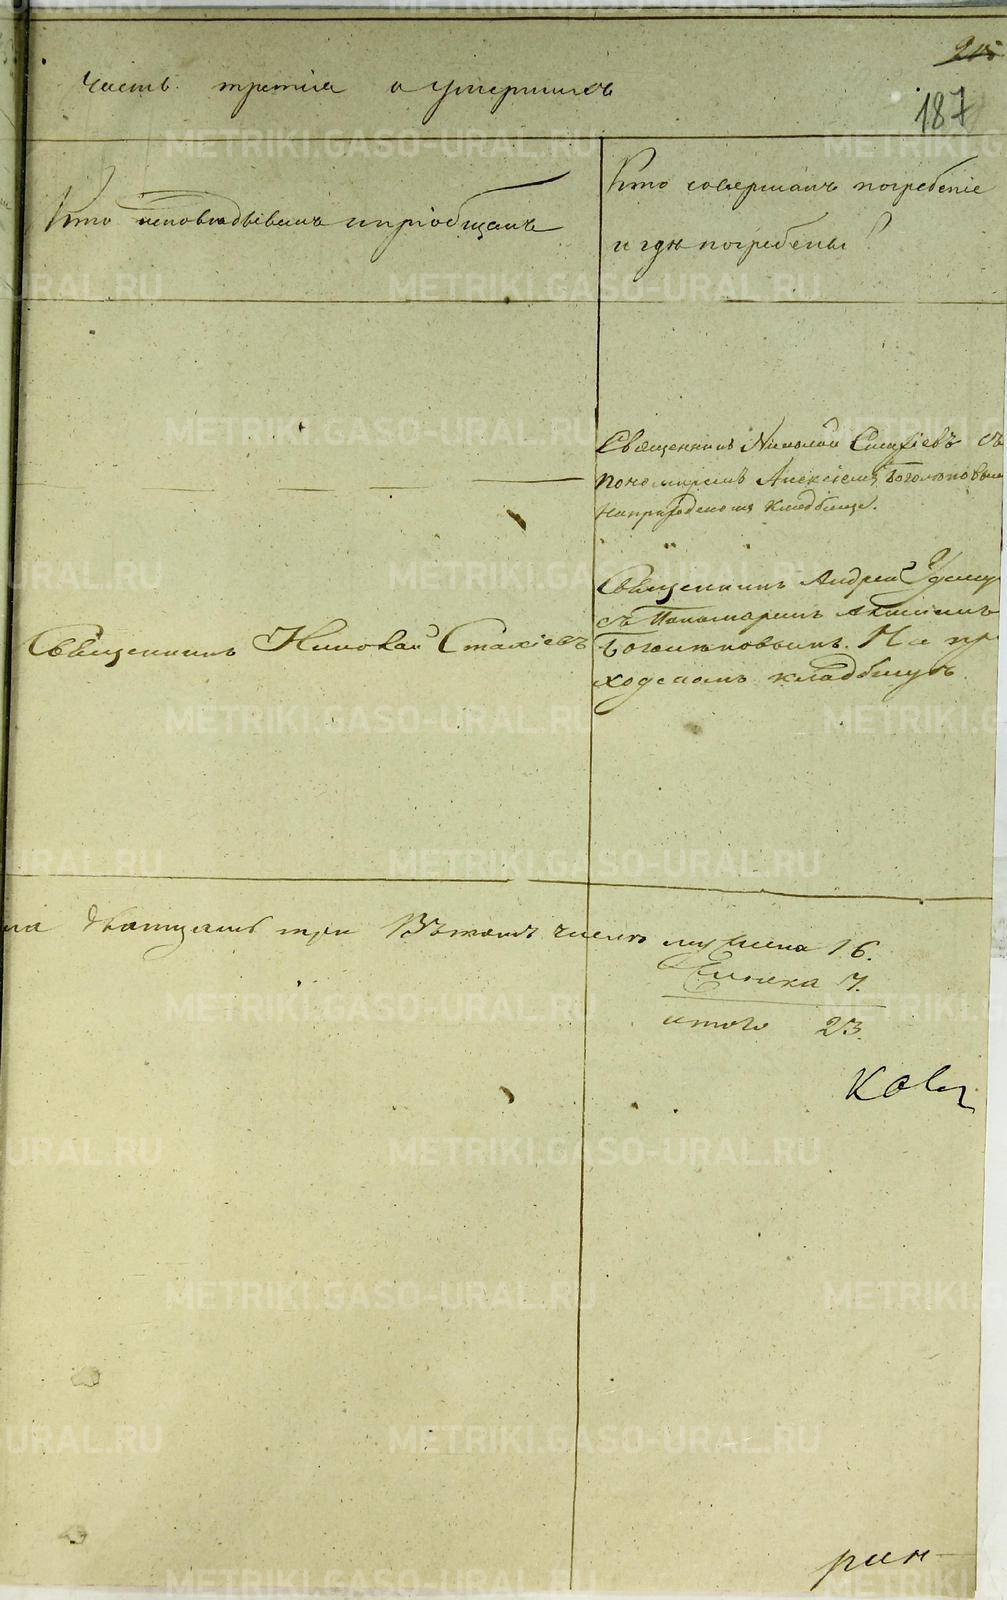 215
187
Часть третiя о умершихъ
Кто исповѣдывалъ и прiобщалъ
Кто совершалъ погребенiе
и гдѣ погребены?
Священникъ Николай Стахiевъ съ
пономаремъ Алексiемъ Боголюбовымъ
На приходскомъ кладбище.
Священникъ Андрей
съ Пономаремъ Алексiемъ
Боголюбовымъ. На при
ходскомъ кладбищѣ
Священникъ Николай Стахiевъ
ла дватцать три Въ томъ числѣ мужеска 16.
Женска 7.
итого 23.
рин
METRIKI.GASO-URAL.RU